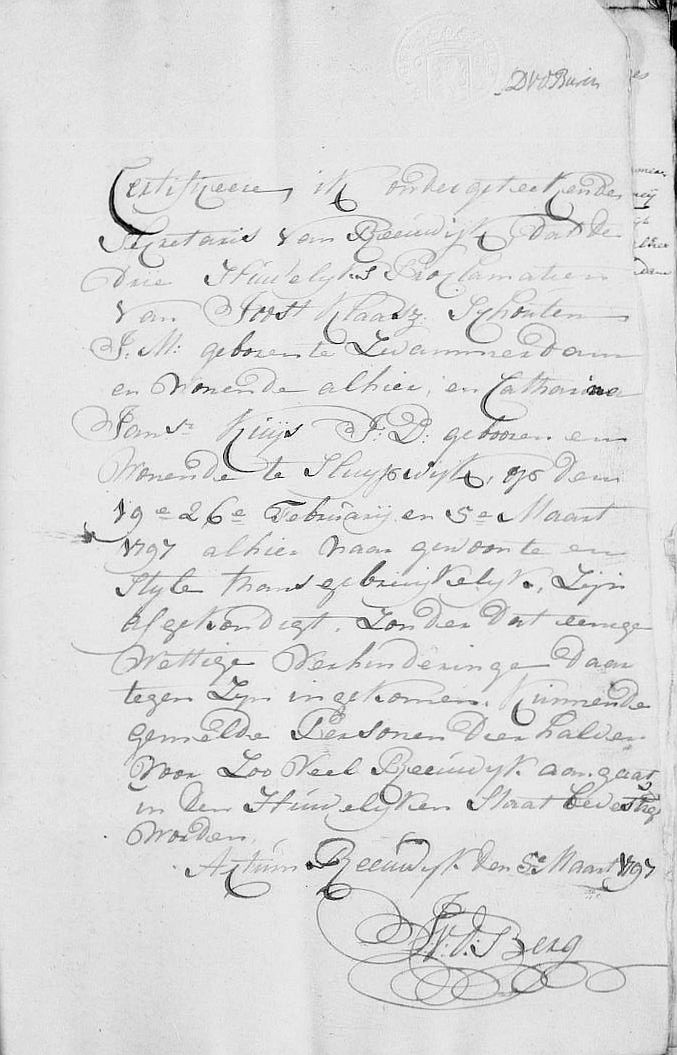 D V V Buren
Certificeere, ik ondergeteekende
Secretaris van Reeuwijk, dat de
drie Huwelijks Proclamatien
van Joost Klaasz. Schouten
J. M: geboren te Zwammerdam
en wonende alhier, en Catharina
Jans.r Kuijs J: D: gebooren en
wonende te Sluypwijk, op den
19e 26e Februarij en 5e Maart
1797 alhier naar gewoonte en
Style thans gebruijkelijk, Zijn
afgekondigt, Zonder dat eenige
Wettige verhinderinge daar
tegen Zijn ingekomen, kunnende
gemelde Personen derhalven
voor Zoo veel Reeuwijk aangaat,
in den Huwelijken Staat bevestigt
worden.
Actum Reeuwijk den 5e Maart 1797
J. V. D. Berg